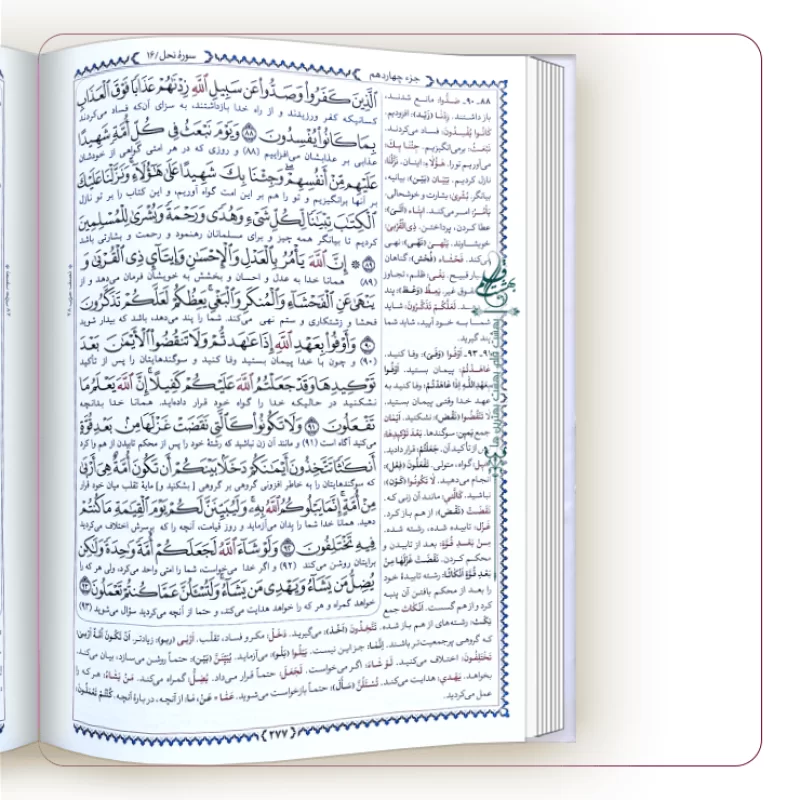 جزء چهاردهم
سورهٔ نحل/ ۱۶
ٱلَّذِينَ كَفَرُواْ وَصَدُّواْ عَن سَبِيلِ ٱللَّهِ زِدْنَٰهُمْ عَذَابًا فَوْقَ ٱلْعَذَابِ
کسانیکه کفر ورزیدند و از راه خدا بازداشتند، به سزای آنکه فساد می‌کردند
بِمَا كَانُواْ يُفْسِدُونَ ۝٨٨ وَيَوْمَ نَبْعَثُ فِى كُلِّ أُمَّةٍ شَهِيدًا
عذابی بر عذابشان می‌افزاییم (۸۸) و روزی که در هر امتی گواهی از خودشان
عَلَيْهِم مِّنْ أَنفُسِهِمْ وَجِئْنَا بِكَ شَهِيدًا عَلَىٰ هَٰٓؤُلَآءِ وَنَزَّلْنَا عَلَيْكَ
بر آنها برانگیزیم و تو را هم بر این امت گواه آوریم، و این کتاب را بر تو نازل
ٱلْكِتَٰبَ تِبْيَٰنًا لِّكُلِّ شَىْءٍ وَهُدًى وَرَحْمَةً وَبُشْرَىٰ لِلْمُسْلِمِينَ
کردیم تا بیانگر همه چیز و برای مسلمانان رهنمود و رحمت و بشارتی باشد
۝٨٩ إِنَّ ٱللَّهَ يَأْمُرُ بِٱلْعَدْلِ وَٱلْإِحْسَٰنِ وَإِيتَآئِ ذِى ٱلْقُرْبَىٰ وَ
(۸۹) همانا خدا به عدل و احسان و بخشش به خویشان فرمان می‌دهد و از
يَنْهَىٰ عَنِ ٱلْفَحْشَآءِ وَٱلْمُنكَرِ وَٱلْبَغْىِ يَعِظُكُمْ لَعَلَّكُمْ تَذَكَّرُونَ
فحشا و زشتکاری و ستم نهی می‌کند. شما را پند می‌دهد، باشد که بیدار شوید
۝٩٠ وَأَوْفُواْ بِعَهْدِ ٱللَّهِ إِذَا عَٰهَدتُّمْ وَلَا تَنقُضُواْ ٱلْأَيْمَٰنَ بَعْدَ
(۹۰) و چون با خدا پیمان بستید وفا کنید و سوگندهایتان را پس از تأکید
تَوْكِيدِهَا وَقَدْ جَعَلْتُمُ ٱللَّهَ عَلَيْكُمْ كَفِيلًا إِنَّ ٱللَّهَ يَعْلَمُ مَا
نشکنید در حالیکه خدا را گواه خود قرار داده‌اید. همانا خدا بدانچه
تَفْعَلُونَ ۝٩١ وَلَا تَكُونُواْ كَٱلَّتِى نَقَضَتْ غَزْلَهَا مِنۢ بَعْدِ قُوَّةٍ
می‌کنید آگاه است (۹۱) و مانند آن زن نباشید که رشتهٔ خود را پس از محکم تابیدن از هم وا کرد
أَنكَٰثًا تَتَّخِذُونَ أَيْمَٰنَكُمْ دَخَلًۢا بَيْنَكُمْ أَن تَكُونَ أُمَّةٌ هِىَ أَرْبَىٰ
سوگندهایتان را به خاطر افزونی گروهی بر گروهی [بشکنید و] مایه تقلب میان خود قرار
مِنْ أُمَّةٍ إِنَّمَا يَبْلُوكُمُ ٱللَّهُ بِهِۦ وَلَيُبَيِّنَنَّ لَكُمْ يَوْمَ ٱلْقِيَٰمَةِ مَا كُنتُمْ
دهید. همانا خدا شما را بدان می‌آزماید و روز قیامت، آنچه را که برسرش اختلاف می‌کردید
فِيهِ تَخْتَلِفُونَ ۝٩٢ وَلَوْ شَآءَ ٱللَّهُ لَجَعَلَكُمْ أُمَّةً وَٰحِدَةً وَلَٰكِن
برایتان روشن می‌کند (۹۲) و اگر خدا می‌خواست، شما را امتی واحد می‌کرد، ولی هر که را
يُضِلُّ مَن يَشَآءُ وَيَهْدِى مَن يَشَآءُ وَلَتُسْـَٔلُنَّ عَمَّا كُنتُمْ تَعْمَلُونَ ۝٩٣
خواهد گمراه و هر که را خواهد هدایت می‌کند، و حتما از آنچه می‌کردید سؤال می‌شوید (۹۳)
۸۸ ـ ۹۰ـ صَدُّوا: مانع شدند،
باز داشتند. زِدْنَا (زَیَدَ): افزودیم.
کَانُوا یُفْسِدُونَ: فساد می‌کردند.
نَبْعَثُ: برمی‌انگیزیم. جِئْنَا بِکَ:
می‌آوریم تو را. هَؤُلَاءِ: اینان. نَزَّلْنَا:
نازل کردیم. تِبْیَان (بَیَنَ): بیانیه،
بیانگر. بُشْرَیٰ: بشارت و خوشحالی.
یَأْمُرُ: امر می‌کند. إِیتَاء (أَتَیَ):
عطا کردن، پرداختن. ذِی القُرْبَیٰ:
خویشاوند. یَنْهَیٰ (نَهَیَ): نهی
می‌کند. فَحْشَاء (فَحُشَ): گناهان
شما به خود آیید، شاید شما
پند گیرید.
۹۱ـ ۹۳ـ أَوْفُوا (وَفَیَ): وفا کنید.
عَاهَدْتُمْ: پیمان بستید. أَوْفُوا
بِعَهْدِ اللّٰهِ إِذَا عَاهَدْتُمْ: وفا کنید به
عهد خدا وقتی پیمان بستید.
لَا تَنْقُضُوا (نَقَضَ): نشکنید. أَیْمَان
جمع یمین: سوگندها. بَعْدَ تَوْکِیدِهَا:
پس از تأکید آن. جَعَلْتُمْ: قرار دادید.
کفیل: گواه، متولی. تَفْعَلُونَ (فَعَلَ):
انجام می‌دهید. لَا تَکُونُوا (کَوَنَ):
نباشید. کَالَّتِی: مانند آن زنی که.
نَقَضَتْ (نَقَضَ): از هم باز کرد.
غَزْل: تابیده شده، رشته شده.
مِنْ بَعْدِ قُوَّة: بعد از تابیدن و
محکم کردن. نَقَضَتْ غَزْلَهَا مِنْ
بَعْدِ قُوَّةٍ أَنْکَاثًا: رشته تابیدهٔ خود
را بعد از محکم بافتن آن پنبه
کرد و از هم گسست. أَنْکَاث جمع
نِکْث: رشته‌های از هم باز شده. تَتَّخِذُونَ (أَخَذَ): می‌گیرید. دَخَل: مکر و فساد، تقلب. أَرْبَیٰ (ربو): زیادتر. أَنْ تَکُونَ أُمَّةٌ أَرْبَیٰ:
که گروهی پرجمعیت‌تر باشند. إِنَّمَا: جز این نیست. یَبْلُوا (بَلَوَ): می‌آزماید. یُبَیِّنَنَّ (بَیَنَ): حتماً روشن می‌سازد، بیان می‌کند.
تَخْتَلِفُونَ: اختلاف می‌کنید. لَوْ شَاءَ: اگر می‌خواست. لَجَعَلَ: حتماً قرار می‌داد. یُضِلُّ: گمراه می‌کند. مَنْ یَشَاءُ: هر که را
بخواهد. یَهْدِی: هدایت می‌کند. تُسْئَلُنَّ (سَأَلَ): حتماً بازخواست می‌شوید. عَمَّا = عَنْ، مَا: از آنچه، درباره آنچه. کُنْتُمْ تَعْمَلُونَ:
عمل می‌کردید.
﴿۲۷۷﴾